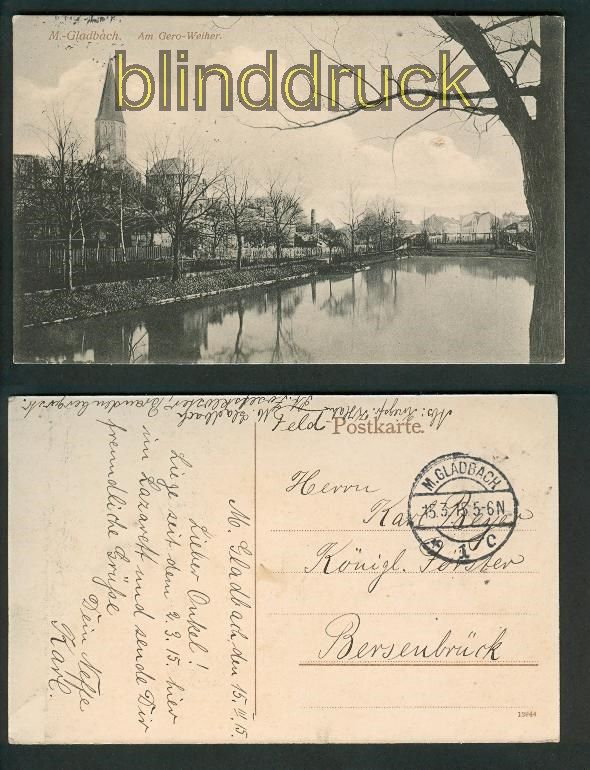 M.-Gladbach. Am Gero-Weiher.
blinddruck
Feld Postkarte.
M. GLADBACH
15.3.15.5-6N
1 c
Herrn
Karl
Königl. Förster
Bersenbrück
19844
M. Gladbach den 15. 3. 15.
Lieber Onkel!
Liege seit dem 2.3.15. hier
im Lazarett und sende Dir
freundliche Grüße
Dein Neffe
Karl.
M. Gladbach
St. Josefskloster,